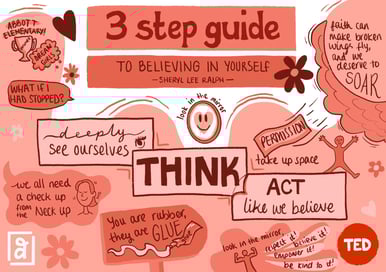 3 step guide
TO BELIEVING IN YOURSELF
- SHERYL LEE RALPH -
ABBOTT
ELEMENTARY!
DREAM
GIRLS
WHAT IF I
HAD STOPPED?
faith can
make broken
wings fly,
and we
deserve to
SOAR
look in the mirror
deeply
see ourselves
THINK
PERMISSION
take up space
ACT
like we believe
we all need
a check up
from the
NECK UP
You are rubber,
they are GLUE
look in the mirror,
respect it!
believe it!
empower it!
be kind to it!
TED